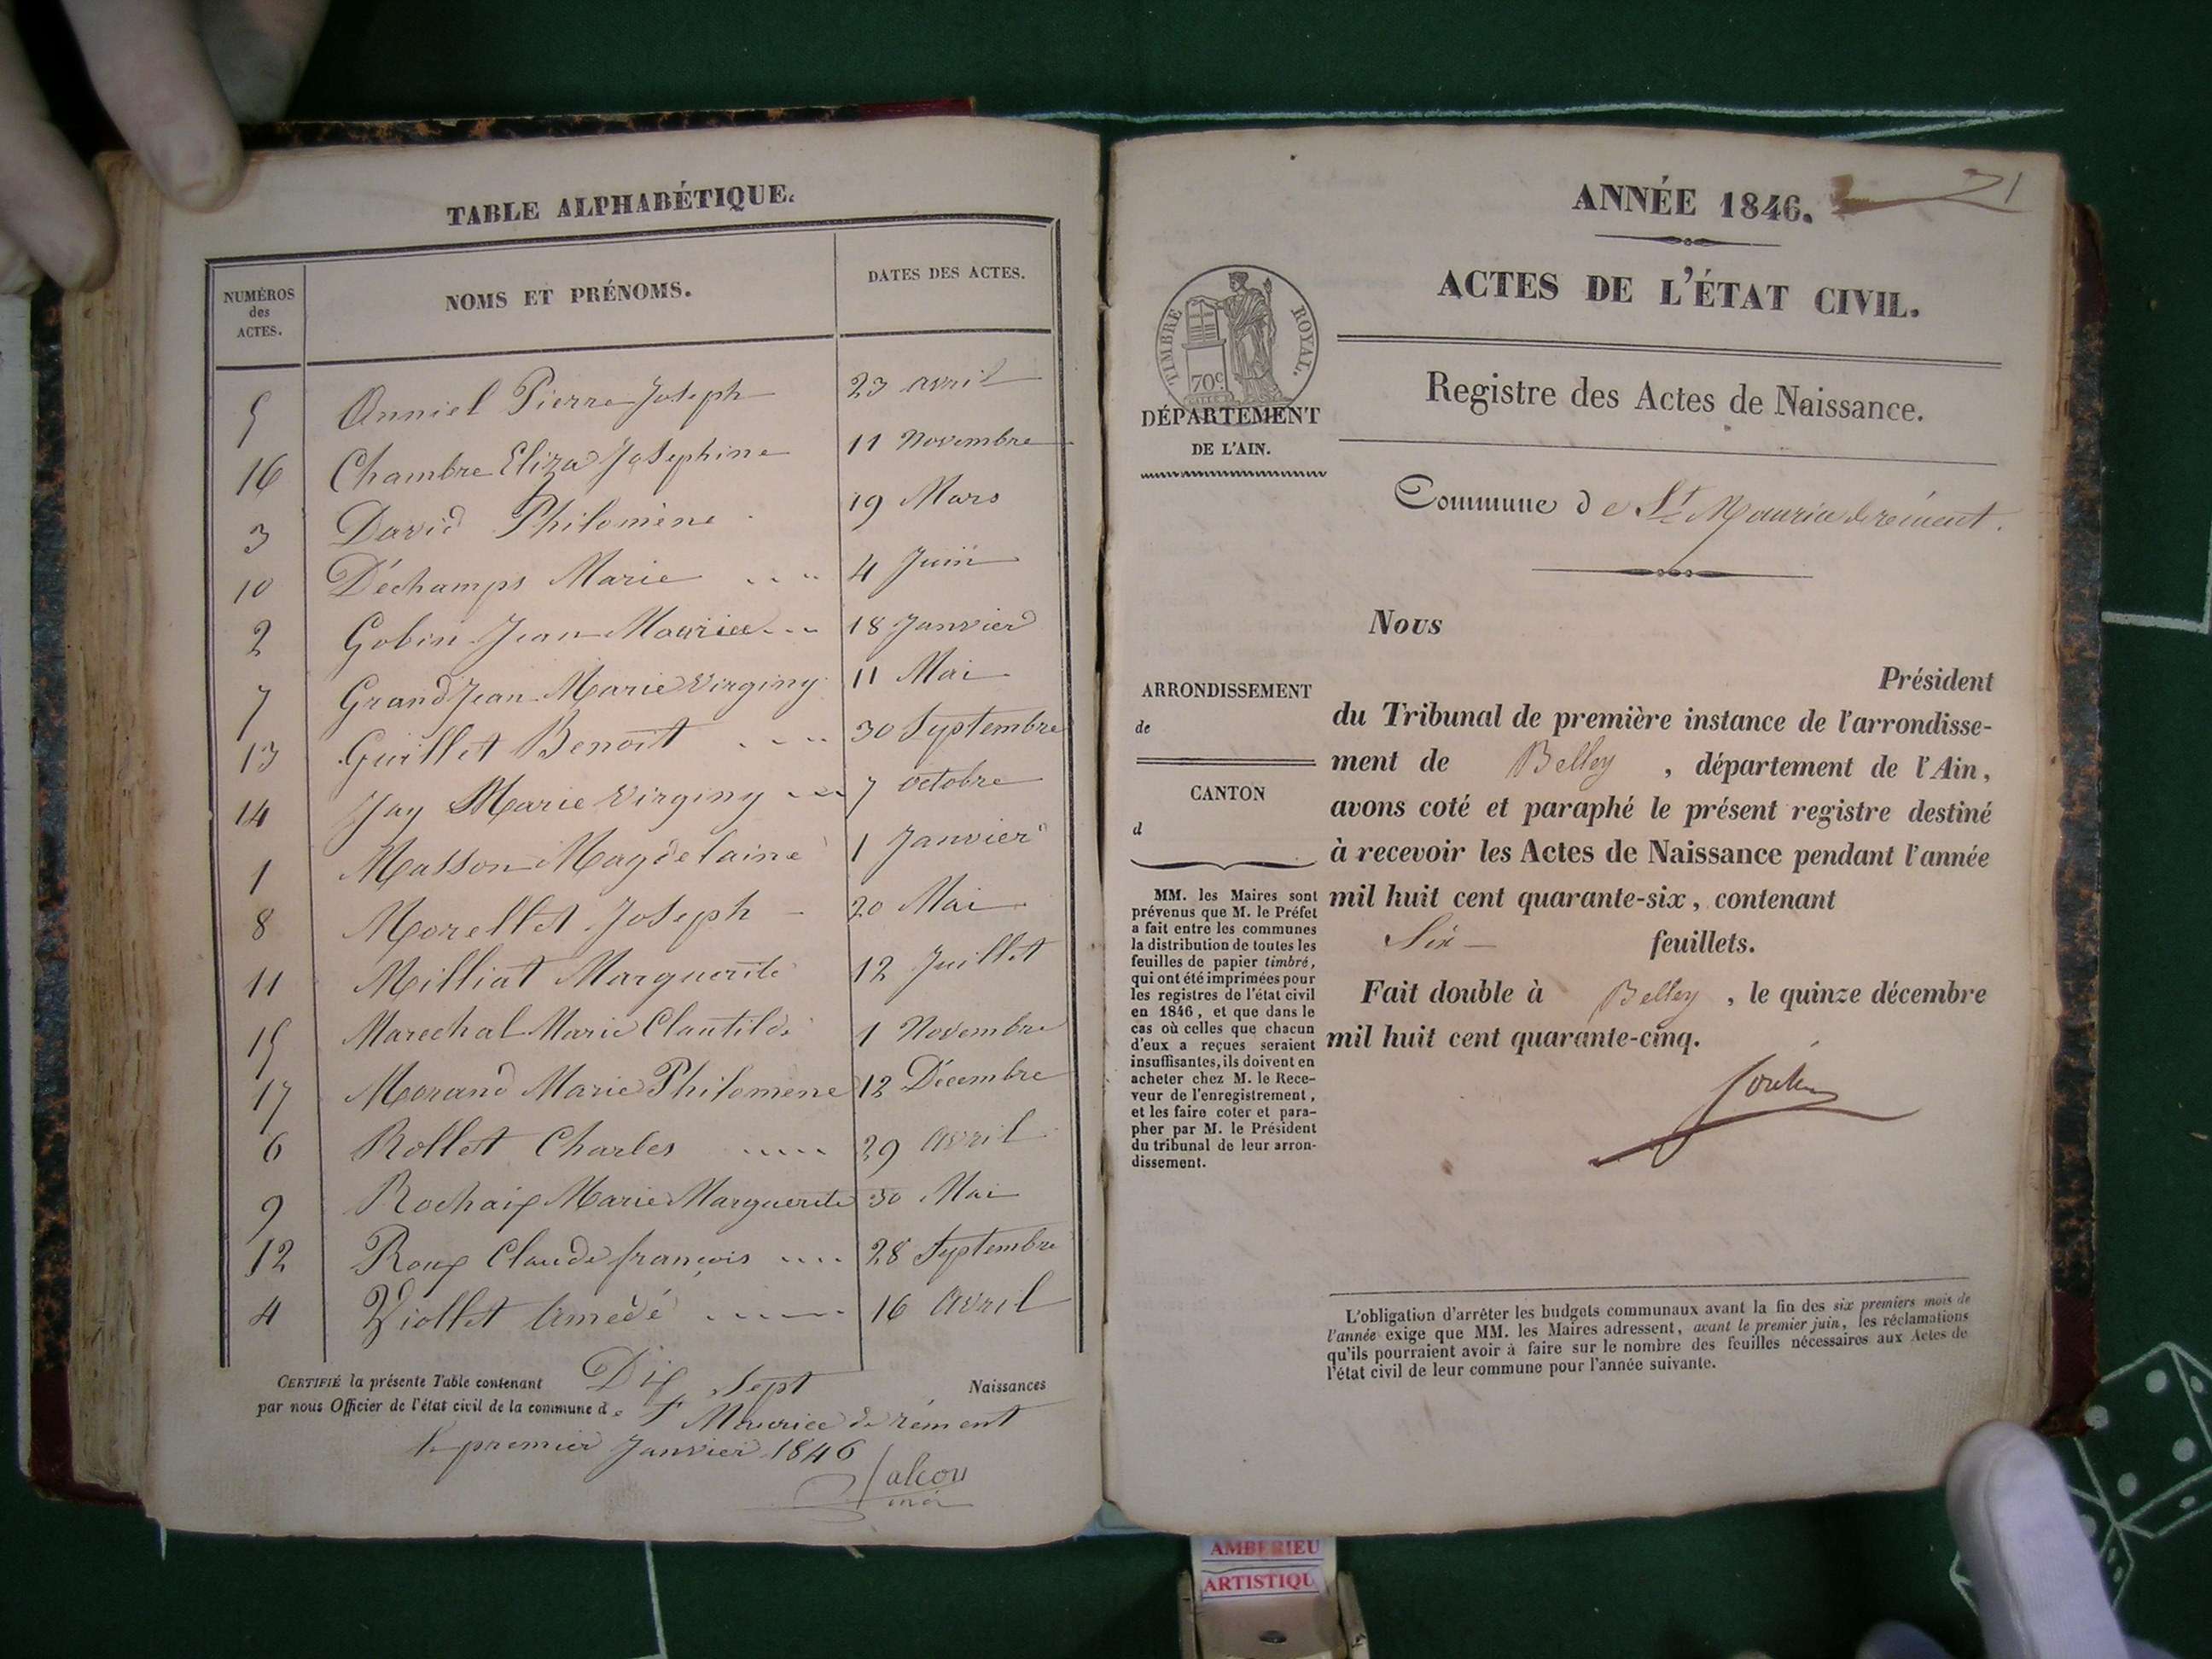 TABLE ALPHABÉTIQUE.
NUMÉROS des ACTES. NOMS ET PRÉNOMS. DATES DES ACTES.
5 Anniel Pierre Joseph 23 avril
16 Chambre Eliza Josephine 11 Novembre
3 David Philomène 19 Mars
10 Déchamps Marie 4 Juin
2 Gobin Jean Maurice 18 Janvier
7 Grand Jean Marie Virginy 11 Mai
13 Guillet Benoit 30 Septembre
14 Jay Marie Virginy 7 octobre
1 Masson Magdelaine 1 Janvier
8 Morellet Joseph 20 Mai
11 Milliat Marguerite 12 Juillet
15 Marechal Marie Clautilde 1 Novembre
17 Morand Marie Philomene 12 Décembre
6 Rollet Charles 29 avril
9 Rochaix Marie Marguerite 30 Mai
12 Roux Claude françois 28 Septembre
4 Viollet Amedé 16 Avril
CERTIFIÉ la présente Table contenant Dix Sept Naissances
par nous Officier de l'état civil de la commune de St Maurice de rément
le premier Janvier 1846
Falcon
ANNÉE 1846. 21
ACTES DE L'ÉTAT CIVIL.
TIMBRE ROYAL.
70c
DÉPARTEMENT
DE L'AIN.
Registre des Actes de Naissance.
Commune de St Maurice de rément.
Nous
Président
du Tribunal de première instance de l'arrondisse-
ment de Belley , département de l'Ain,
avons coté et paraphé le présent registre destiné
à recevoir les Actes de Naissance pendant l'année
mil huit cent quarante-six, contenant
Six feuillets.
Fait double à Belley , le quinze décembre
mil huit cent quarante-cinq.
ARRONDISSEMENT
de
CANTON
d
MM. les Maires sont
prévenus que M. le Préfet
a fait entre les communes
la distribution de toutes les
feuilles de papier timbré,
qui ont été imprimées pour
les registres de l'état civil
en 1846, et que dans le
cas où celles que chacun
d'eux a reçues seraient
insuffisantes, ils doivent en
acheter chez M. le Rece-
veur de l'enregistrement,
et les faire coter et para-
pher par M. le Président
du tribunal de leur arron-
dissement.
L'obligation d'arrêter les budgets communaux avant la fin des six premiers mois de
l'année exige que MM. les Maires adressent, avant le premier juin, les réclamations
qu'ils pourraient avoir à faire sur le nombre des feuilles nécessaires aux Actes de
l'état civil de leur commune pour l'année suivante.
AMBERIEU
ARTISTIQU